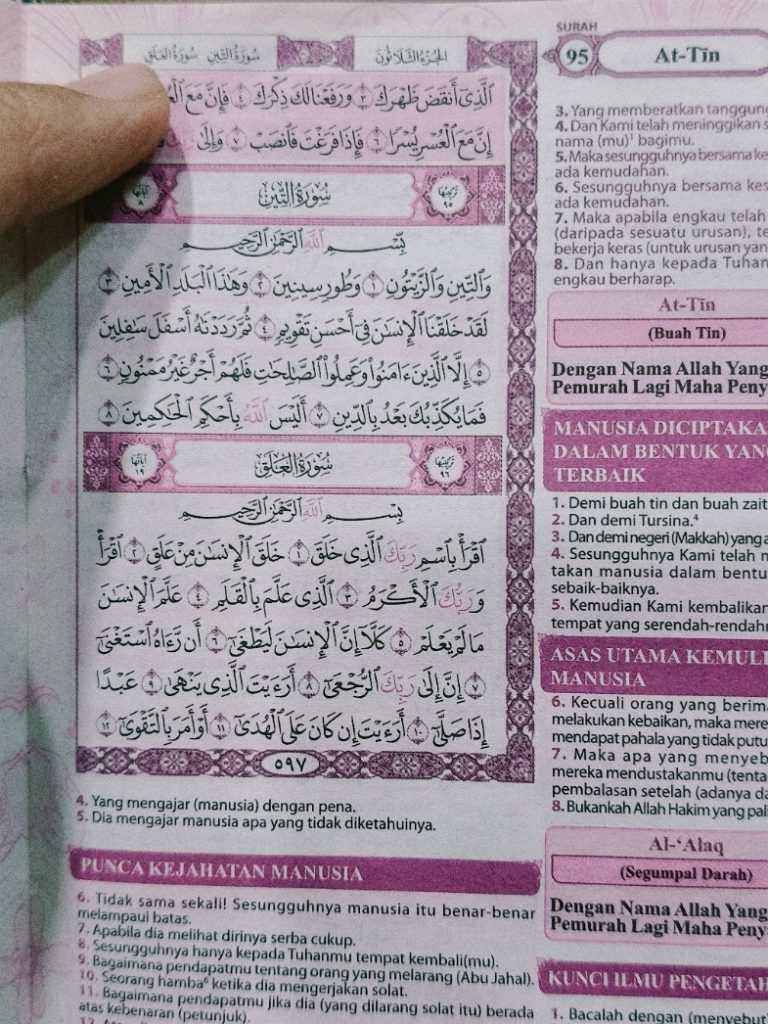 سُورَةُ التِّينِ سُورَةُ العَلَقِ
الجُزْءُ الثَّلَاثُونَ
الَّذِىٓ أَنقَضَ ظَهْرَكَ ٣ وَرَفَعْنَا لَكَ ذِكْرَكَ ٤ فَإِنَّ مَعَ
إِنَّ مَعَ الْعُسْرِ يُسْرًا ٦ فَإِذَا فَرَغْتَ فَانصَبْ ٧ وَإِلَىٰ
ترتيبها ٩٥ سُورَةُ التِّينِ آياتها ٨
بِسْمِ اللَّهِ الرَّحْمَٰنِ الرَّحِيمِ
وَالتِّينِ وَالزَّيْتُونِ ١ وَطُورِ سِينِينَ ٢ وَهَٰذَا الْبَلَدِ الْأَمِينِ ٣
لَقَدْ خَلَقْنَا الْإِنسَٰنَ فِىٓ أَحْسَنِ تَقْوِيمٍ ٤ ثُمَّ رَدَدْنَٰهُ أَسْفَلَ سَٰفِلِينَ
٥ إِلَّا الَّذِينَ ءَامَنُوا۟ وَعَمِلُوا۟ الصَّٰلِحَٰتِ فَلَهُمْ أَجْرٌ غَيْرُ مَمْنُونٍ ٦
فَمَا يُكَذِّبُكَ بَعْدُ بِالدِّينِ ٧ أَلَيْسَ اللَّهُ بِأَحْكَمِ الْحَٰكِمِينَ ٨
ترتيبها ٩٦ سُورَةُ العَلَقِ آياتها ١٩
بِسْمِ اللَّهِ الرَّحْمَٰنِ الرَّحِيمِ
اقْرَأْ بِاسْمِ رَبِّكَ الَّذِى خَلَقَ ١ خَلَقَ الْإِنسَٰنَ مِنْ عَلَقٍ ٢ اقْرَأْ
وَرَبُّكَ الْأَكْرَمُ ٣ الَّذِى عَلَّمَ بِالْقَلَمِ ٤ عَلَّمَ الْإِنسَٰنَ
مَا لَمْ يَعْلَمْ ٥ كَلَّآ إِنَّ الْإِنسَٰنَ لَيَطْغَىٰٓ ٦ أَن رَّءَاهُ اسْتَغْنَىٰٓ
٧ إِنَّ إِلَىٰ رَبِّكَ الرُّجْعَىٰٓ ٨ أَرَءَيْتَ الَّذِى يَنْهَىٰ ٩ عَبْدًا
إِذَا صَلَّىٰٓ ١٠ أَرَءَيْتَ إِن كَانَ عَلَى الْهُدَىٰٓ ١١ أَوْ أَمَرَ بِالتَّقْوَىٰٓ ١٢
٥٩٧
4. Yang mengajar (manusia) dengan pena.
5. Dia mengajar manusia apa yang tidak diketahuinya.
PUNCA KEJAHATAN MANUSIA
6. Tidak sama sekali! Sesungguhnya manusia itu benar-benar
melampaui batas.
7. Apabila dia melihat dirinya serba cukup.
8. Sesungguhnya hanya kepada Tuhanmu tempat kembali(mu).
9. Bagaimana pendapatmu tentang orang yang melarang (Abu Jahal).
10. Seorang hamba⁶ ketika dia mengerjakan solat.
11. Bagaimana pendapatmu jika dia (yang dilarang solat itu) berada
atas kebenaran (petunjuk).
SURAH
95 At-Tīn
3. Yang memberatkan
4. Dan Kami telah meninggikan
nama (mu)¹ bagimu.
5. Maka sesungguhnya bersama
ada kemudahan.
6. Sesungguhnya bersama
ada kemudahan.
7. Maka apabila engkau telah
(daripada sesuatu urusan),
bekerja keras (untuk urusan
8. Dan hanya kepada
engkau berharap.
At-Tīn
(Buah Tin)
Dengan Nama Allah Yang
Pemurah Lagi Maha
MANUSIA
DALAM BENTUK
TERBAIK
1. Demi buah tin dan buah
2. Dan demi Tursina.⁴
3. Dan demi negeri (Makkah) yang
4. Sesungguhnya Kami telah
takan manusia dalam
sebaik-baiknya.
5. Kemudian Kami
tempat yang
ASAS UTAMA
MANUSIA
6. Kecuali orang yang
melakukan kebaikan, maka
mendapat pahala yang tidak
7. Maka apa yang
mereka mendustakanmu
pembalasan setelah (adanya
8. Bukankah Allah Hakim yang
Al-‘Alaq
(Segumpal Darah)
Dengan Nama Allah Yang
Pemurah Lagi Maha
KUNCI ILMU
1. Bacalah dengan